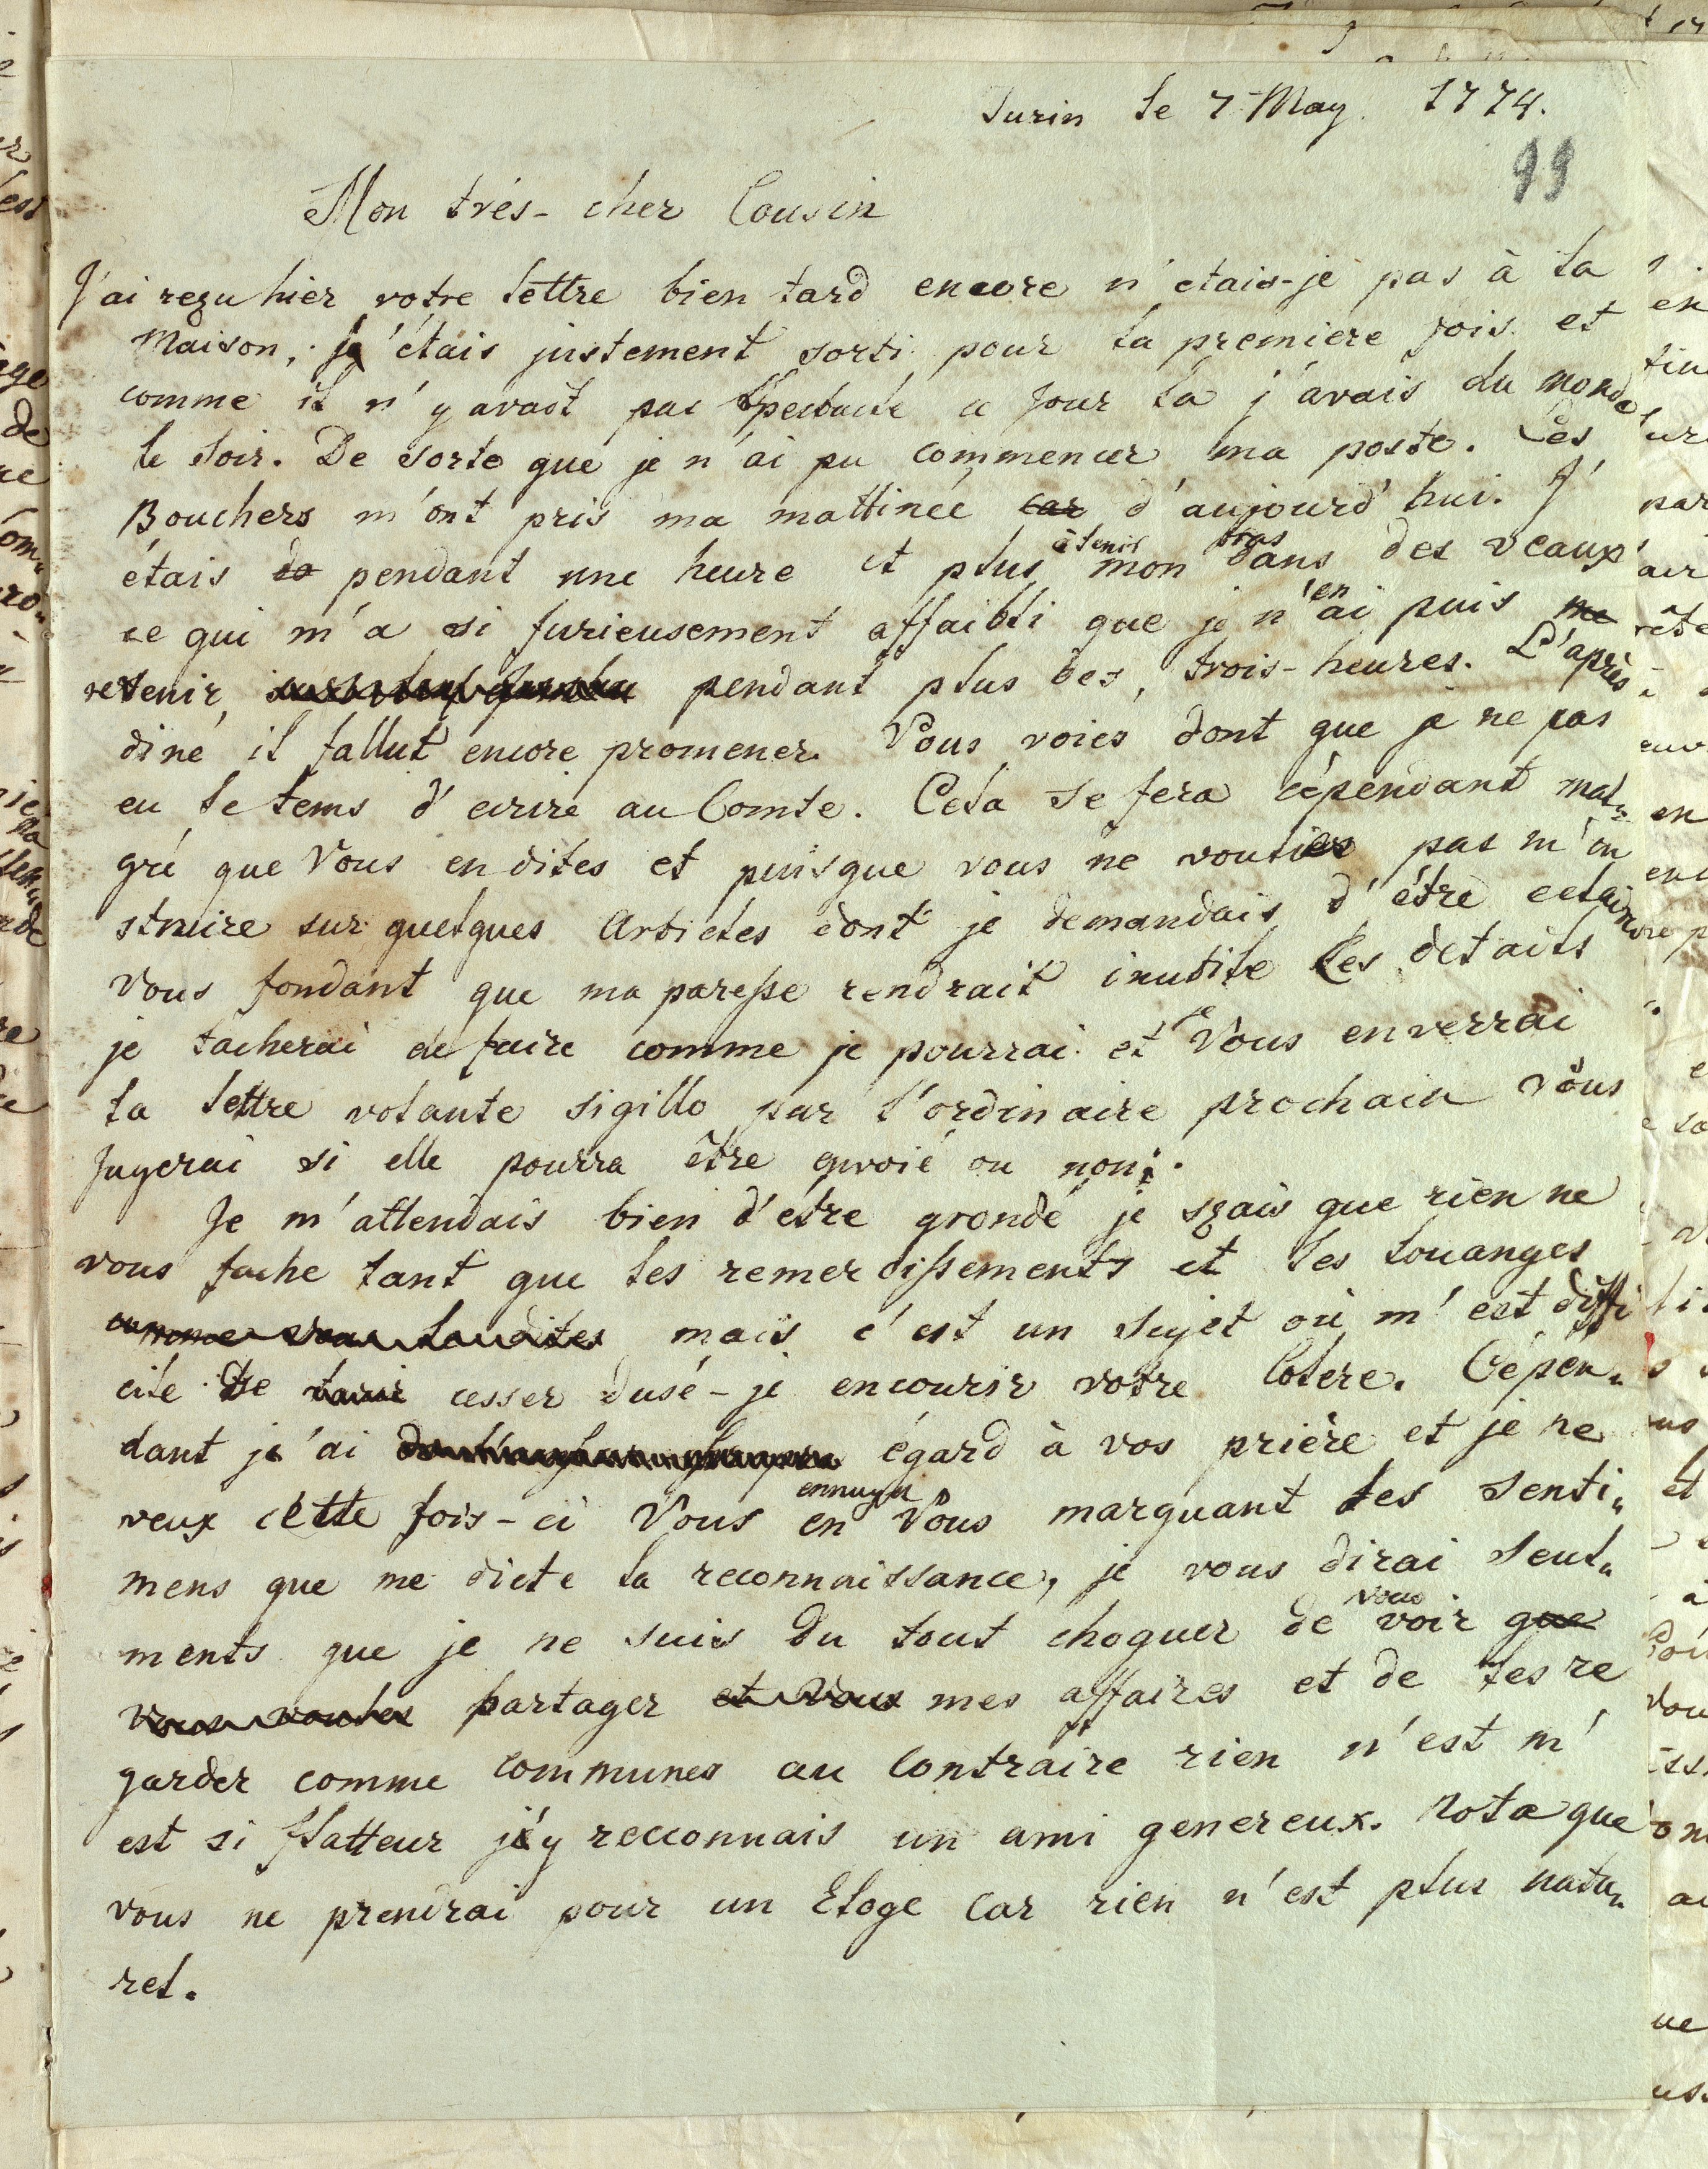 Turin le 7 May 1774.
99
Mon trés-cher Cousin
J'ai reçu hier votre lettre bien tard encore n'etais-je pas à la
Maison, j'étais justement sorti pour la premiere fois et
comme il n'y avait pas Spectacle ce Jour la j'avais du monde
le Soir. De sorte que je n'ai pu commencer ma poste. Les
Bouchers m'ont pris ma mattinée car d'aujourd'hui. J'
étais de pendant une heure et plus à tenir mon bras dans des veaux
ce qui m'a si furieusement affaibli que je n'en ai puis me
retenir pendant plus des, trois-heures. L'après
diné il fallut encore promener. Vous voiés dont que je ne pas
eu le tems d'ecrire au Comte. Cela se fera cépendant mal„
gré que Vous en dites et puisque vous ne vouliés pas m'in
struire sur quelques Articles dont je demandais d'étre eclairé
vous fondant que ma paresse rendrait inutile les details
je tacherai de faire comme je pourrai et je Vous enverrai
la lettre volante sigillo par l'ordinaire prochain vous
Jugerai si elle pourra être envoié ou non.
Je m'attendais bien d'étre grondé je sçais que rien ne
vous fache tant que les remerdissements et les louanges
comme vous dites mais c'est un Sujet où m'est diffi
cile de tarir cesser dusé-je encourir votre Colere. Cépen„
dant je'ai égard à vos prière et je ne
veux cette fois-ci Vous ennuyer en Vous marquant les Senti„
mens que me dicte la reconnaissance, je vous dirai Seul„
ments que je ne suis du tout choquer de vous voir que
vous voules partager et vous mes affaires et de les re
garder comme communes au Contraire rien n'est m'
est si flatteur j'y recconnais un ami genereux. Nota que
vous ne prendrai pour un Eloge Car rien n'est plus natu„
rel.